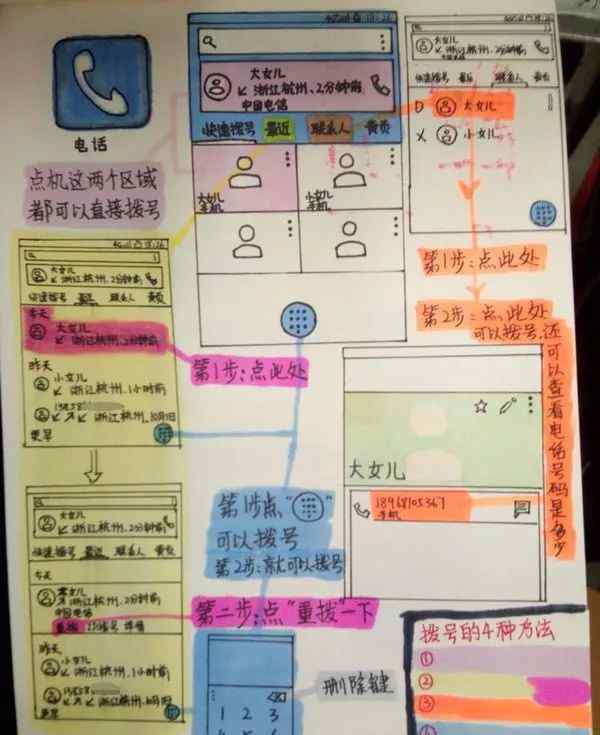 电话
点机这两个区域
都可以直接拨号
大女儿
浙江杭州、2分钟前
中国电信
快速拨号 最近 联系人 黄页
大女儿
手机
小女儿
手机
大女儿
浙江杭州、2分钟前
快速拨号 最近 联系人 黄页
D 大女儿
X 小女儿
第1步:点此处
第2步:点此处
可以拨号,还
可以查看电话号码是多少
大女儿
浙江杭州,2分钟前
快速拨号 最近 联系人 黄页
今天
大女儿
浙江杭州,2分钟前
昨天
小女儿
浙江杭州,1小时前
13858
浙江杭州,10月1日
更早
第1步:点此处
大女儿
18968105367
手机
第1步点“ ”
可以拨号
第2步:京尤可以拨号
大女儿
浙江杭州,2分钟前
快速拨号 最近 联系人 黄页
今天
浙江杭州、2分钟前
中国电信
重拨 详情
昨天
小女儿
浙江杭州,1小时前
13858
更早
第二步:点“重拨”一下
删除键
1 2 3
拨号的4种方法
①
②
③
④